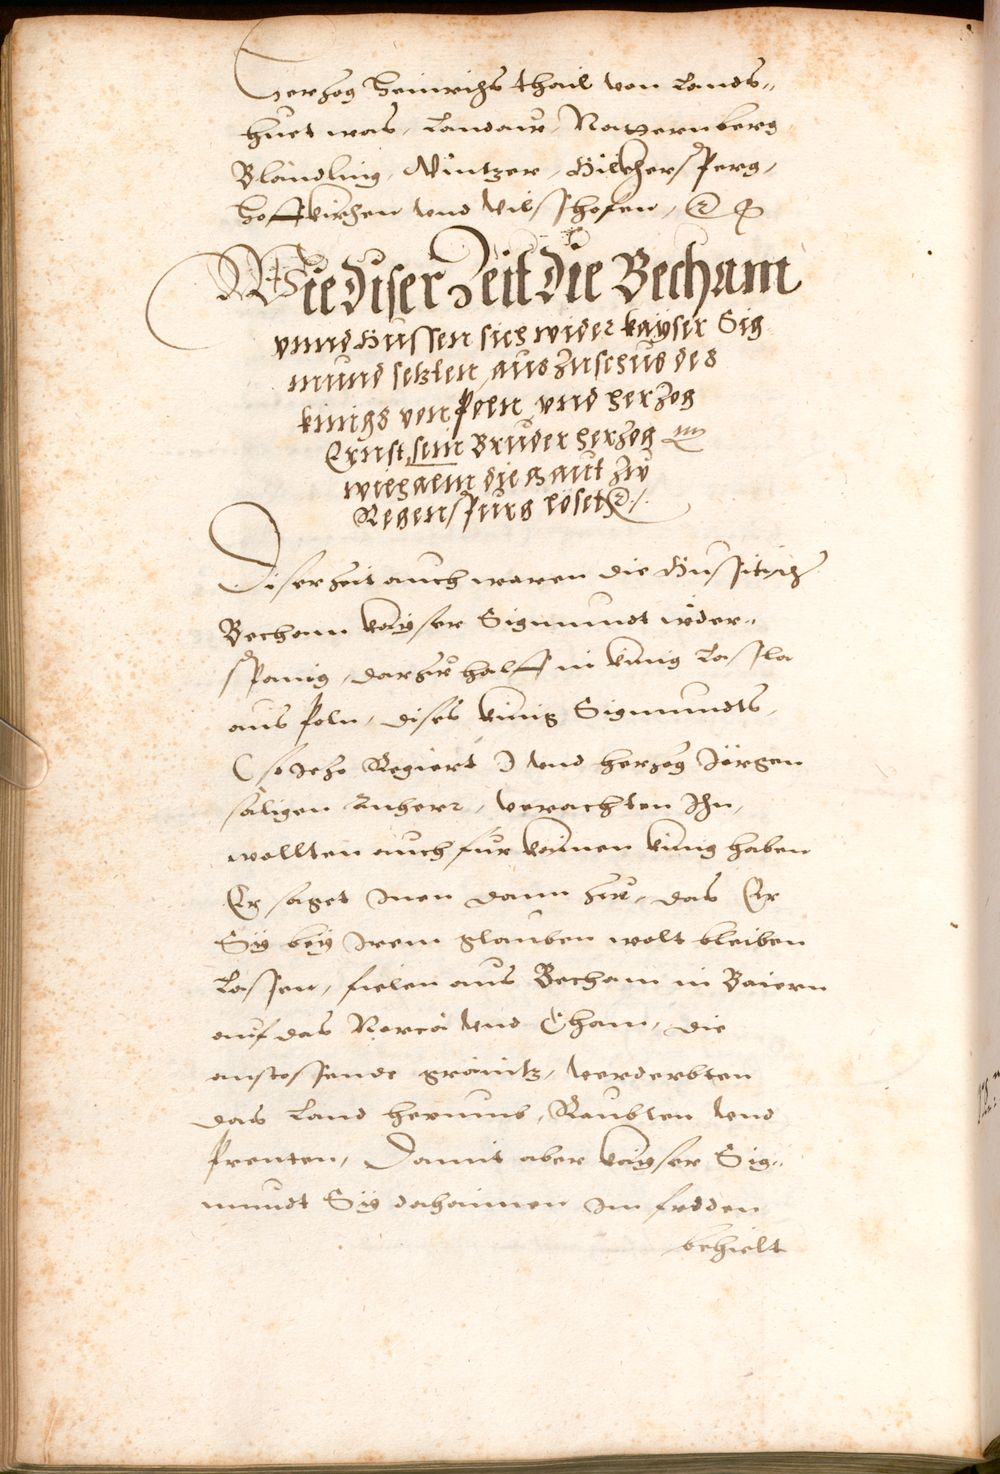 Herzog Heinrichs thail von Lands„
huet was, Landaur, Natzernberg
Blandling, Wintzer, Hilkhersperg,
Hoffkirchen vnd Vilsshofen, 
Wie diser Zeit die Becham
vnnd Hussen sich wider kayser Sig
mund setzten, aus zuschub des
künigs von Poln, vnd herzog
Ernst, sein Bruder herzog
wilhalm die haut zů
Regenspurg löset
Diser Zeit auch waren die Hussitisch
Becham kayser Sigmundt wider„
spänig, darzů halff in künig Lassla
aus Poln, dises künig Sigmundts,
(so Jeho Regiert) vnd herzog Jörgen
säligen Anherr, verachten Ihn,
wollten auch für kainen künig haben
Er saget Inen dann zů, das Er
Sy bey Irem glauben wolt bleiben
Lassen, fielen aus Becham in Baiern
auf das Norca vnd Cham, die
anstossende gränitz, verderbten
das Land herumb, Raubten vnd
Prenten, Damit aber kayser Sig„
mundt Sy dahaimen Im fridden
behielt